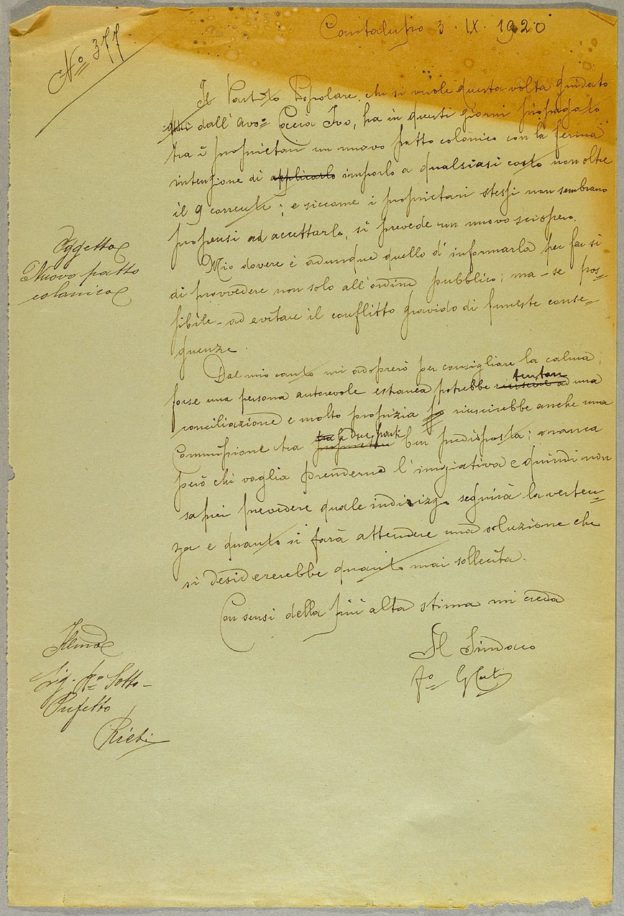 Nº 377
Cantalupo 3. IX. 1920
Il Partito Popolare, che si vuole questa volta guidato
qui dall'Avº Coccia Ivo, ha in questi giorni propagato
tra i proprietari un nuovo patto colonico con la ferma
intenzione di applicarlo imporlo a qualsiasi costo non oltre
il 9 corrente; e siccome i proprietari stessi non sembrano
propensi ad accettarlo, si prevede un nuovo sciopero.
Oggetto
Nuovo patto
colonico
Mio dovere è adunque quello d'informarla per far sì
di provvedere non solo all'ordine pubblico; ma - se pos-
sibile - ad evitare il conflitto gravido di funeste conse-
guenze.
Dal mio canto mi adoprerò per consigliare la calma,
forse una persona autorevole estranea potrebbe tentare una
conciliazione e molto propizia riuscirebbe anche una
Commissione tra le due parti ben predisposta; manca
però chi voglia prenderne l'iniziativa e quindi non
saprei prevedere quale indirizzo seguirà la verten-
za e quanto si farà attendere una soluzione che
si desidererebbe quanto mai sollecita.
Con sensi della più alta stima mi creda
Il Sindaco
Fº
Illmo
Sig. Sotto-
Prefetto
Rieti